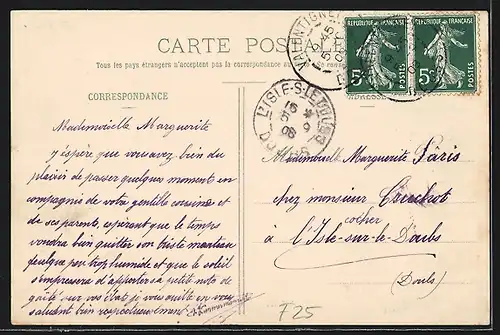 CARTE POSTALE
Tous les pays étrangers n'acceptent pas la correspondance au
CORRESPONDANCE
ADRESSE
VALENTIGNEY
L'ISLE-S-LE-DOUBS
RÉPUBLIQUE FRANÇAISE
5c
POSTES
RÉPUBLIQUE FRANÇAISE
5c
POSTES
Mademoiselle Marguerite
J'espère que vous avez bien du
plaisir de passer quelques moments en
compagnie de votre gentille cousine et
de ses parents, espérant que le temps
voudra bien quitter son triste manteau
quelque peu trop humide et que le soleil
s'empressera d'apporter sa petite note de
gaîté sur vos ébats je vous quitte en vous
saluant bien respectueusement
Mademoiselle Marguerite Pâris
chez monsieur
cocher
à l'Isle-sur-le Doubs
(Doubs)
F25